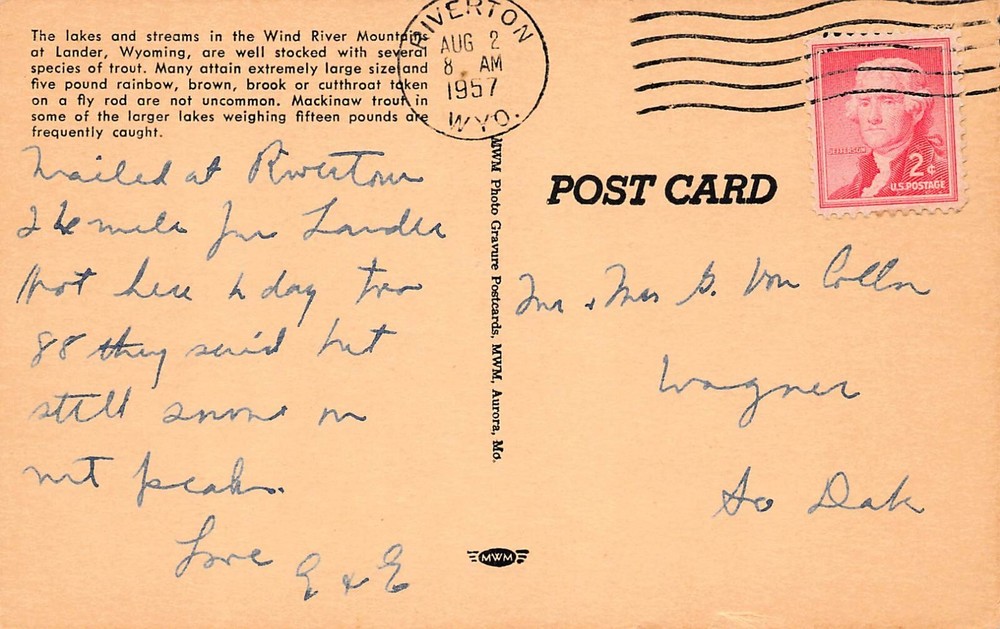 The lakes and streams in the Wind River Mountains
at Lander, Wyoming, are well stocked with several
species of trout. Many attain extremely large size and
five pound rainbow, brown, brook or cutthroat taken
on a fly rod are not uncommon. Mackinaw trout in
some of the larger lakes weighing fifteen pounds are
frequently caught.
RIVERTON
AUG 2
8 AM
1957
WYO.
JEFFERSON
2¢
U.S. POSTAGE
POST CARD
MWM Photo Gravure Postcards, MWM, Aurora, Mo.
Mailed at Rivertown
26 mile from Lander
Hot here to day too
88 they said but
still snow on
mt peaks.
Love E & E
Mr & Mrs G. Von
Wagner
So Dak
MWM